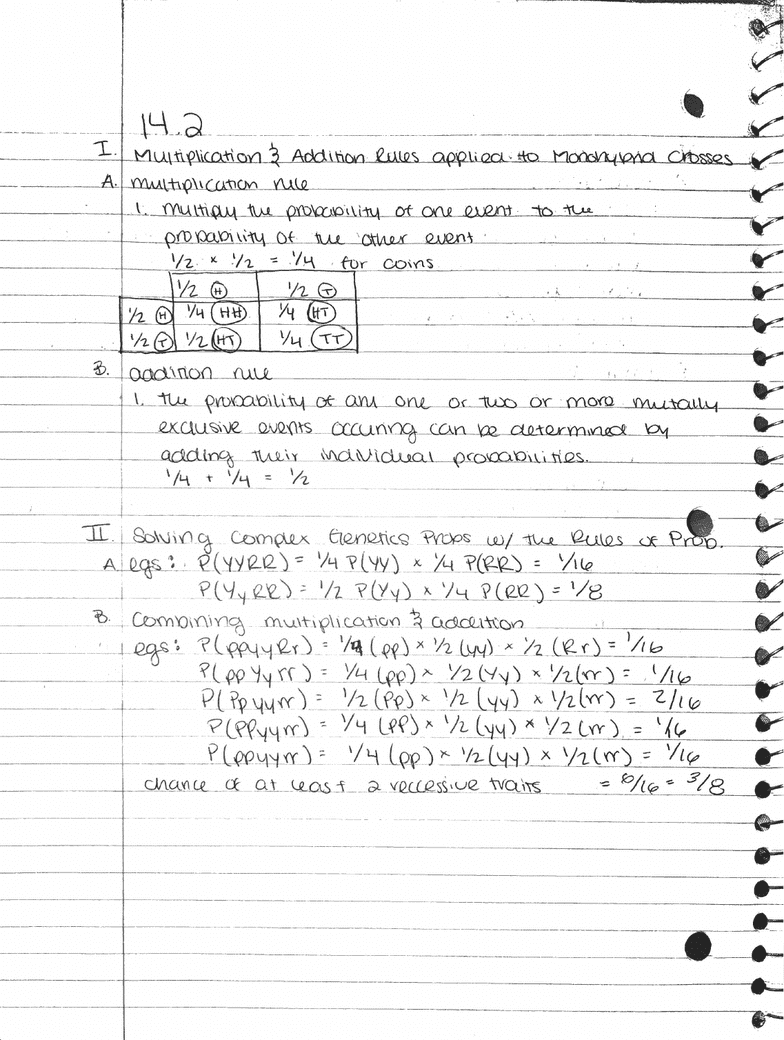 14.2
I. Multiplication & Addition Rules applied to Monohybrid Crosses
A. multiplication rule
1. multiply the probability of one event to the
probability of the other event
1/2 × 1/2 = 1/4 for coins
1/2 (H) 1/2 (T)
1/2 (H) 1/4 (HH) 1/4 (HT)
1/2 (T) 1/2 (HT) 1/4 (TT)
B. addition rule
1. the probability of any one or two or more mutally
exclusive events occuring can be determined by
adding their individual probabilities.
1/4 + 1/4 = 1/2
II. Solving Complex Genetics Props w/ the Rules of Prob.
A. egs: P(YYRR) = 1/4 P(YY) × 1/4 P(RR) = 1/16
P(YyRR) = 1/2 P(Yy) × 1/4 P(RR) = 1/8
B. Combining multiplication & addition
egs: P(ppyyRr) = 1/4 (pp) × 1/2 (yy) × 1/2 (Rr) = 1/16
P(ppYyrr) = 1/4 (pp) × 1/2 (Yy) × 1/2 (rr) = 1/16
P(Ppyyrr) = 1/2 (Pp) × 1/2 (yy) × 1/2 (rr) = 2/16
P(PPyyrr) = 1/4 (PP) × 1/2 (yy) × 1/2 (rr) = 1/16
P(ppyyrr) = 1/4 (pp) × 1/2 (yy) × 1/2 (rr) = 1/16
chance of at least 2 reccessive traits = 6/16 = 3/8